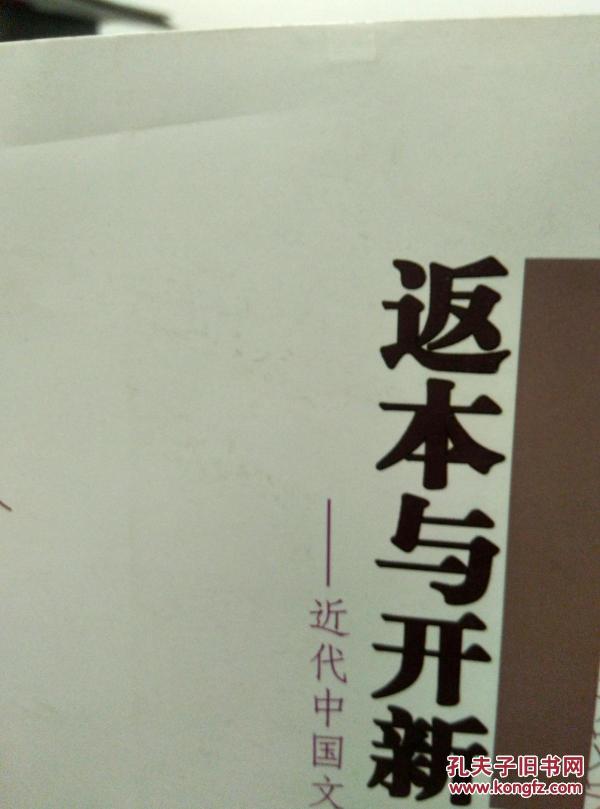 返本与开新
——近代中国文
孔夫子旧书网
www.kongfz.com